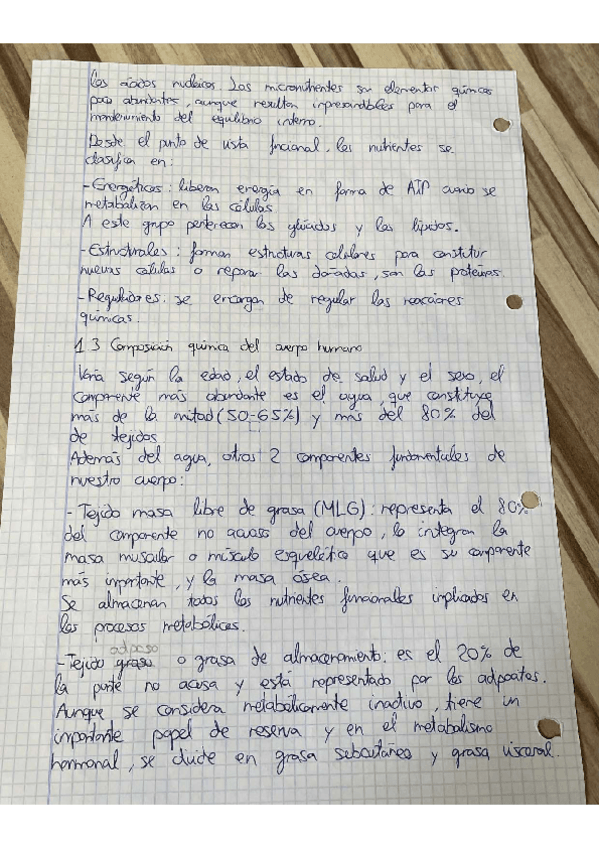 los ácidos nucleicos. Los micronutrientes son elementos químicos
poco abundantes, aunque resultan inprescindibles para el
mantenimiento del equilibrio interno.
Desde el punto de vista funcional, los nutrientes se
clasifican en:
- Energéticos: liberan energía en forma de ATP cuando se
metabolizan en las células
A este grupo pertenecen los glúcidos y los lípidos.
- Estructurales: forman estructuras celulares para constituir
nuevas células o reparar las dañadas, son las proteínas
- Reguladores: se encargan de regular las reacciones
químicas.
1.3 Composición química del cuerpo humano
Varía según la edad, el estado de salud y el sexo, el
componente más abundante es el agua, que constituye
más de la mitad (50-65%) y más del 80% del
de tejidos
Además del agua, otros 2 componentes fundamentales de
nuestro cuerpo:
- Tejido masa libre de grasa (MLG): representa el 80%
del componente no acuoso del cuerpo, lo integran la
masa muscular o músculo esquelético que es su componente
más inportante, y la masa ósea.
Se almacenan todos los nutrientes funcionales inplicados en
los procesos metabólicos.
adposo
- Tejido graso o grasa de almacenamiento: es el 20% de
la parte no acusa y está representado por los adpocitos.
Aunque se considera metabólicamente inactivo, tiene un
inportante papel de reserva y en el metabolismo
hormonal, se divide en grasa subcutánea y grasa visceral.